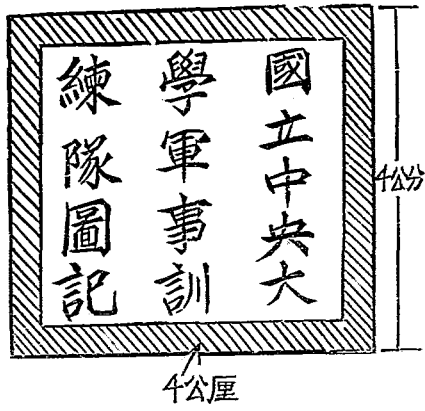 國立中央大
學軍事訓
練隊圖記
4公分
4公厘